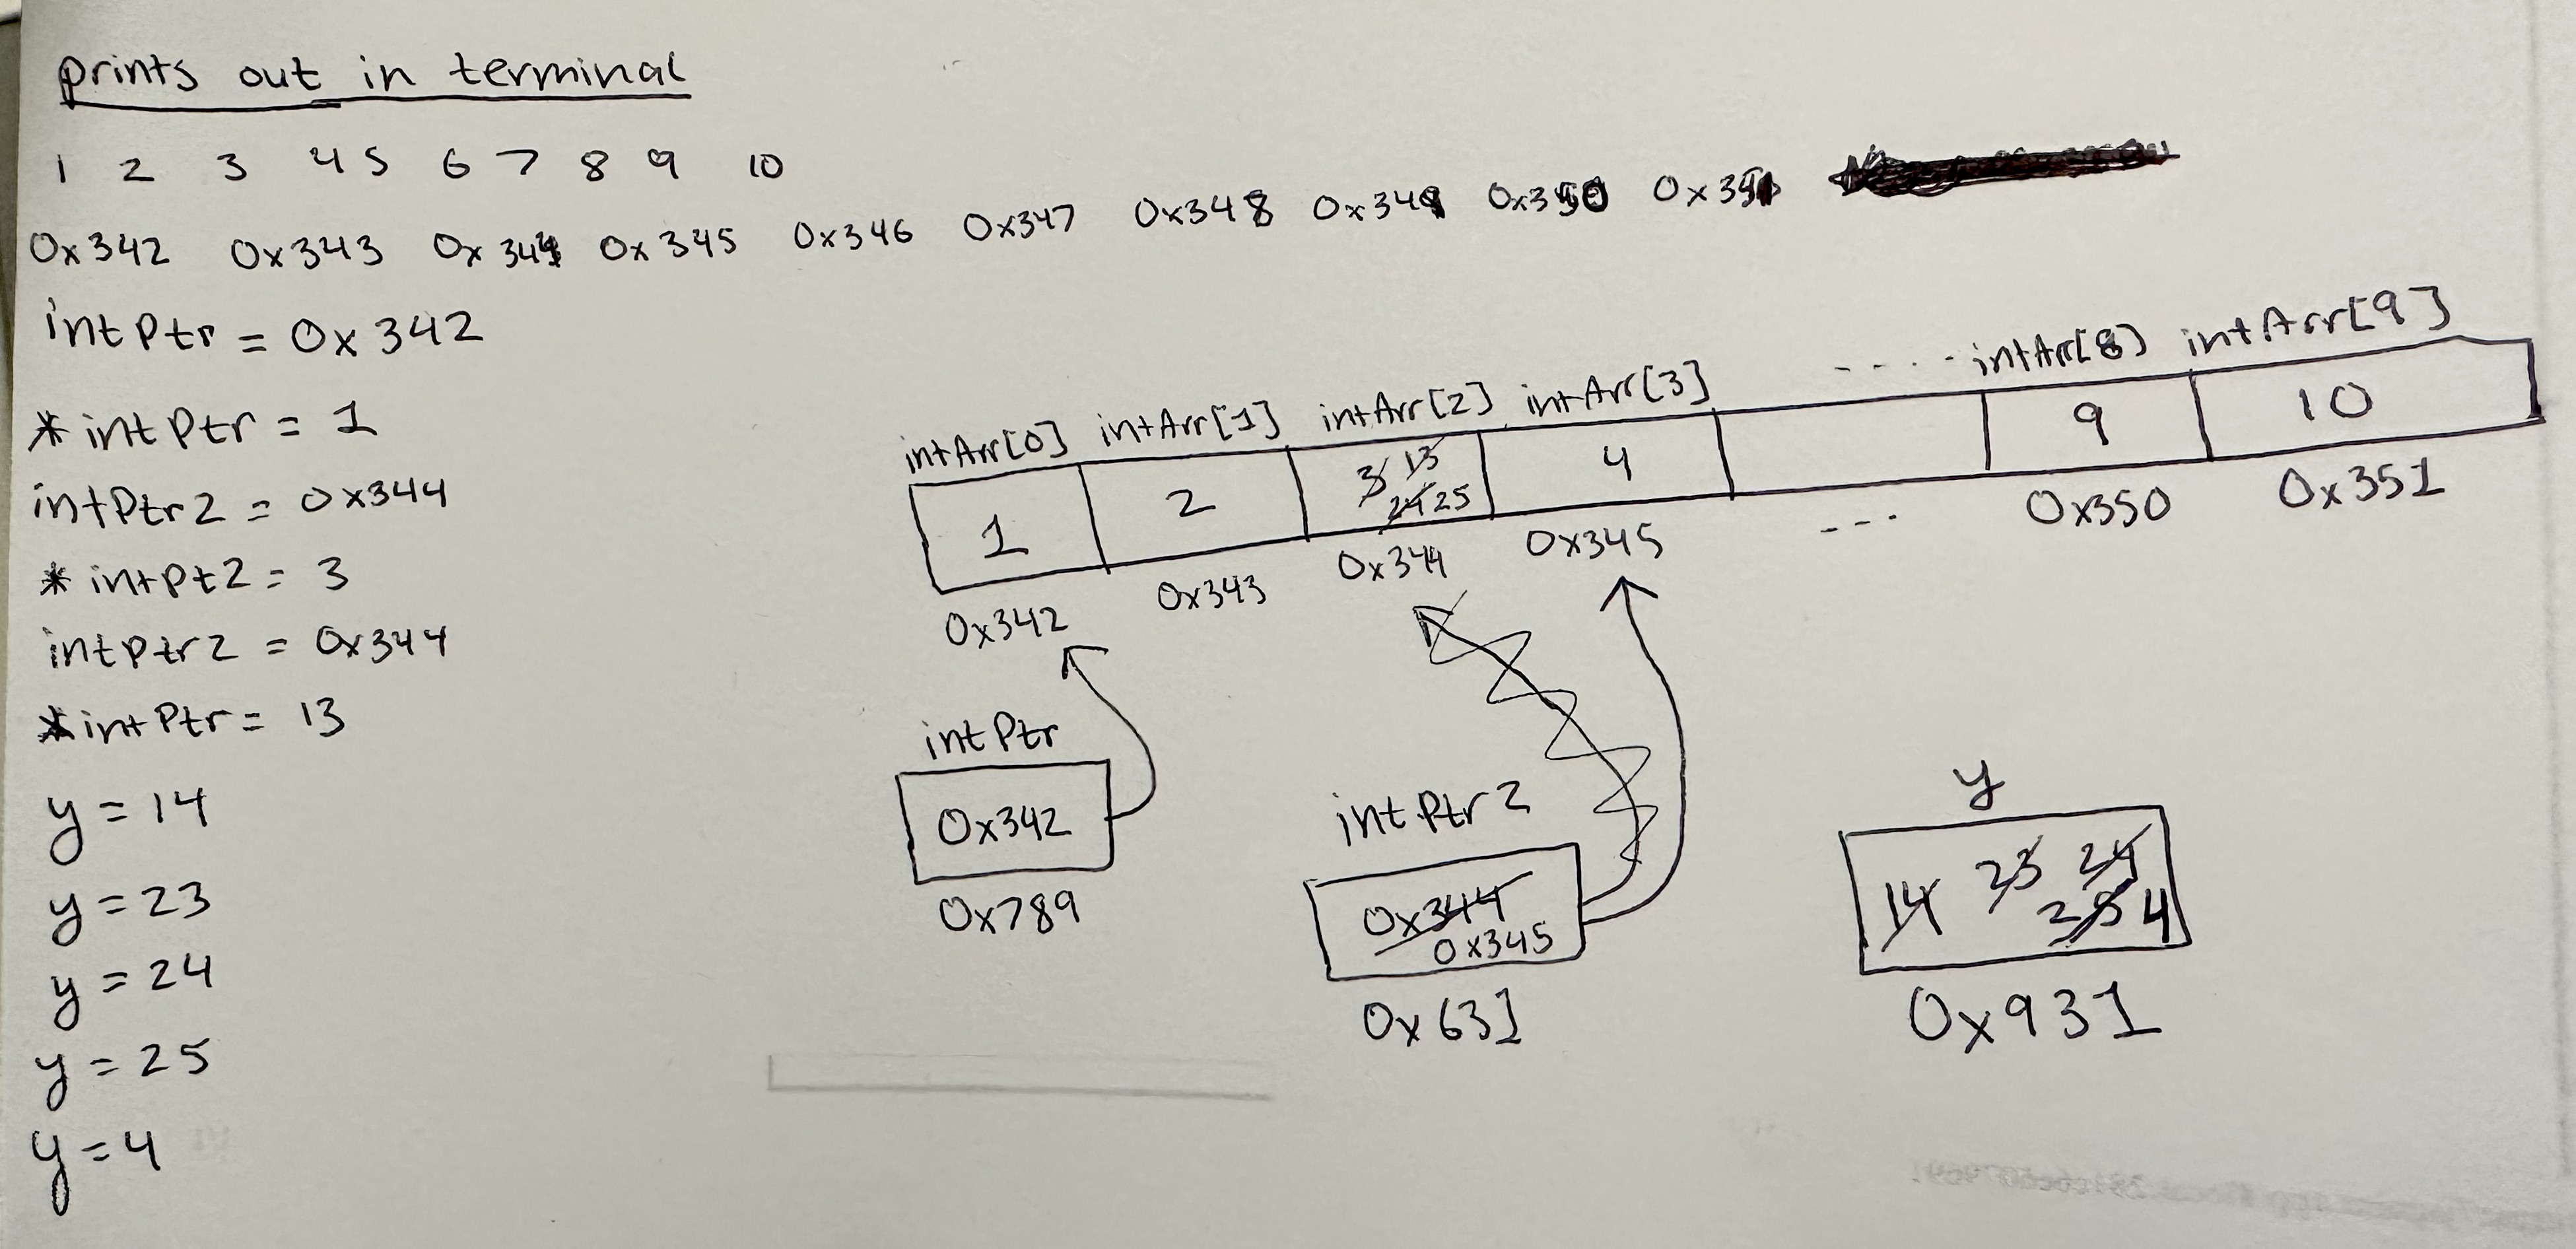 prints out in terminal
1 2 3 4 5 6 7 8 9 10
0x342 0x343 0x344 0x345 0x346 0x347 0x348 0x349 0x350 0x351
intPtr = 0x342
*intPtr = 1
intPtr2 = 0x344
*intPt2 = 3
intptr2 = 0x344
*intPtr = 13
y = 14
y = 23
y = 24
y = 25
y = 4
intArr[0] intArr[1] intArr[2] intArr[3] .... intArr[8] intArr[9]
1 2 3 13 4 9 10
24 25
0x342 0x343 0x344 0x345 --- 0x350 0x351
intPtr
0x342
0x789
intPtr2
0x344
0x345
0x631
y
14 23 24
25 4
0x931